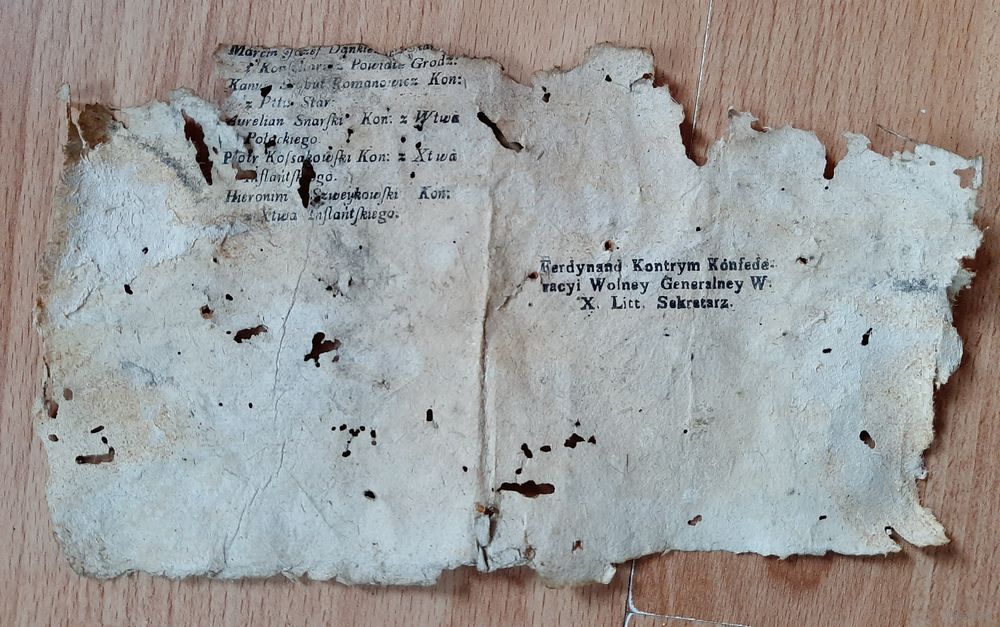 Marcin Jozef
z Powiatu Grodz:
Romanowicz Kon:
z Pttu Star:
Aurelian Snarski Kon: z Wtwa
Połockiego.
Piotr Koſsakowſki Kon: z Xtwà
Inflantſkiego.
Hieronim Szweykowſki Kon:
z Xtwa Inflantſkiego.
Ferdynand Kontrym Konfede-
racyi Wolney Generalney W.
X. Litt. Sekretarz.